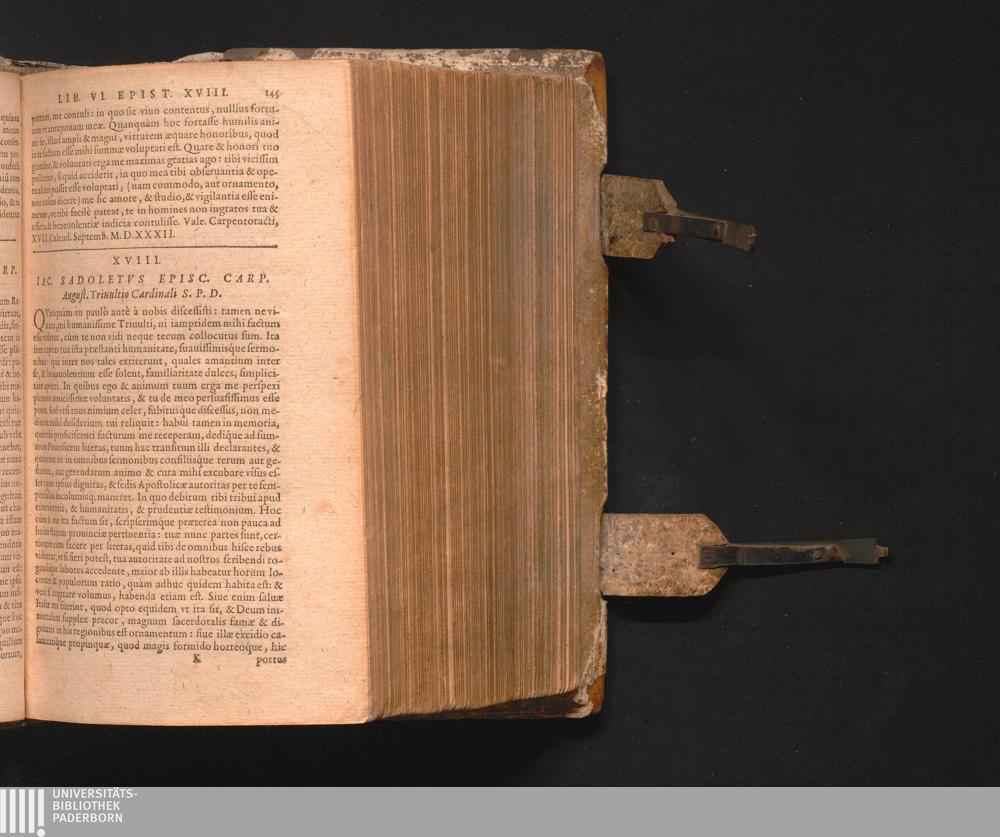 LIB. VI. EPIST. XVIII. 145
me contuli: in quo sic viuo contentus, nullius fortu-
nam vt anteponam meæ. Quanquàm hoc fortasse humilis ani-
mi sit, illud ampli & magni, virtutem æquare honoribus, quod
in te factum esse mihi summæ voluptati est. Quare & honori tuo
gratulor, & voluntati erga me maximas gratias ago: tibi vicissim
polliceor, si quid acciderit, in quo mea tibi obseruantia & ope-
ra alicui possit esse voluptati, (nam commodo, aut ornamento,
non ausim dicere) me sic amore, & studio, & vigilantia esse eni-
xurum, vt tibi facilè pateat, te in homines non ingratos tua &
officia & beneuolentiæ indicia contulisse. Vale. Carpentoracti,
XVII. Calend. Septemb. M.D.XXXII.
XVIII.
IAC. SADOLETVS EPISC. CARP.
August. Triuultio Cardinali S. P. D.
QVanquàm tu paulò antè à nobis discessisti: tamen ne vi-
uam, mi humanissime Triuulti, ni iampridem mihi factum
esse videtur, cùm te non vidi neque tecum collocutus sum. Ita
sum captus tua ista præstanti humanitate, suauissimisque sermo-
nibus: qui inter nos tales extiterunt, quales amantium inter
se, & beneuolentium esse solent, familiaritate dulces, simplici-
tate aperti. In quibus ego & animum tuum erga me perspexi
plenum amicissimæ voluntatis, & tu de meo persuasissimus esse
potes. Sed etsi tuus nimium celer, subitusque discessus, non me-
diocre mihi desiderium tui reliquit: habui tamen in memoria,
quæ tibi proficiscenti facturum me receperam, dedique ad sum-
mum Pontificem literas, tuum hac transitum illi declarantes, &
quantum tu in omnibus sermonibus consiliisque rerum aut ge-
starum, aut gerendarum animo & cura mihi excubare visus es-
set, quo ipsius dignitas, & sedis Apostolicæ autoritas per te sem-
per salua incolumisq; maneret. In quo debitum tibi tribui apud
eum virtutis, & humanitatis, & prudentiæ testimonium. Hoc
cùm à me ita factum sit, scripserimque præterea non pauca ad
huius statum prouinciæ pertinentia: tuæ nunc partes sunt, cer-
tiorem eum facere per literas, quid tibi de omnibus hisce rebus
videatur, vt si fieri potest, tua autoritate ad nostros scribendi ro-
gandique labores accedente, maior ab illis habeatur horum lo-
corum & populorum ratio, quàm adhuc quidem habita est: &
verè si cogitare volumus, habenda etiam est. Siue enim saluæ
hæ res fuerint, quod opto equidem vt ita sit, & Deum im-
mortalem supplex precor, magnum sacerdotalis famæ & di-
gnitatis in his regionibus est ornamentum: siue illæ excidio ca-
lamitatique propinquæ, quod magis formido horreoque, hic
K portus
UNIVERSITÄTS-
BIBLIOTHEK
PADERBORN